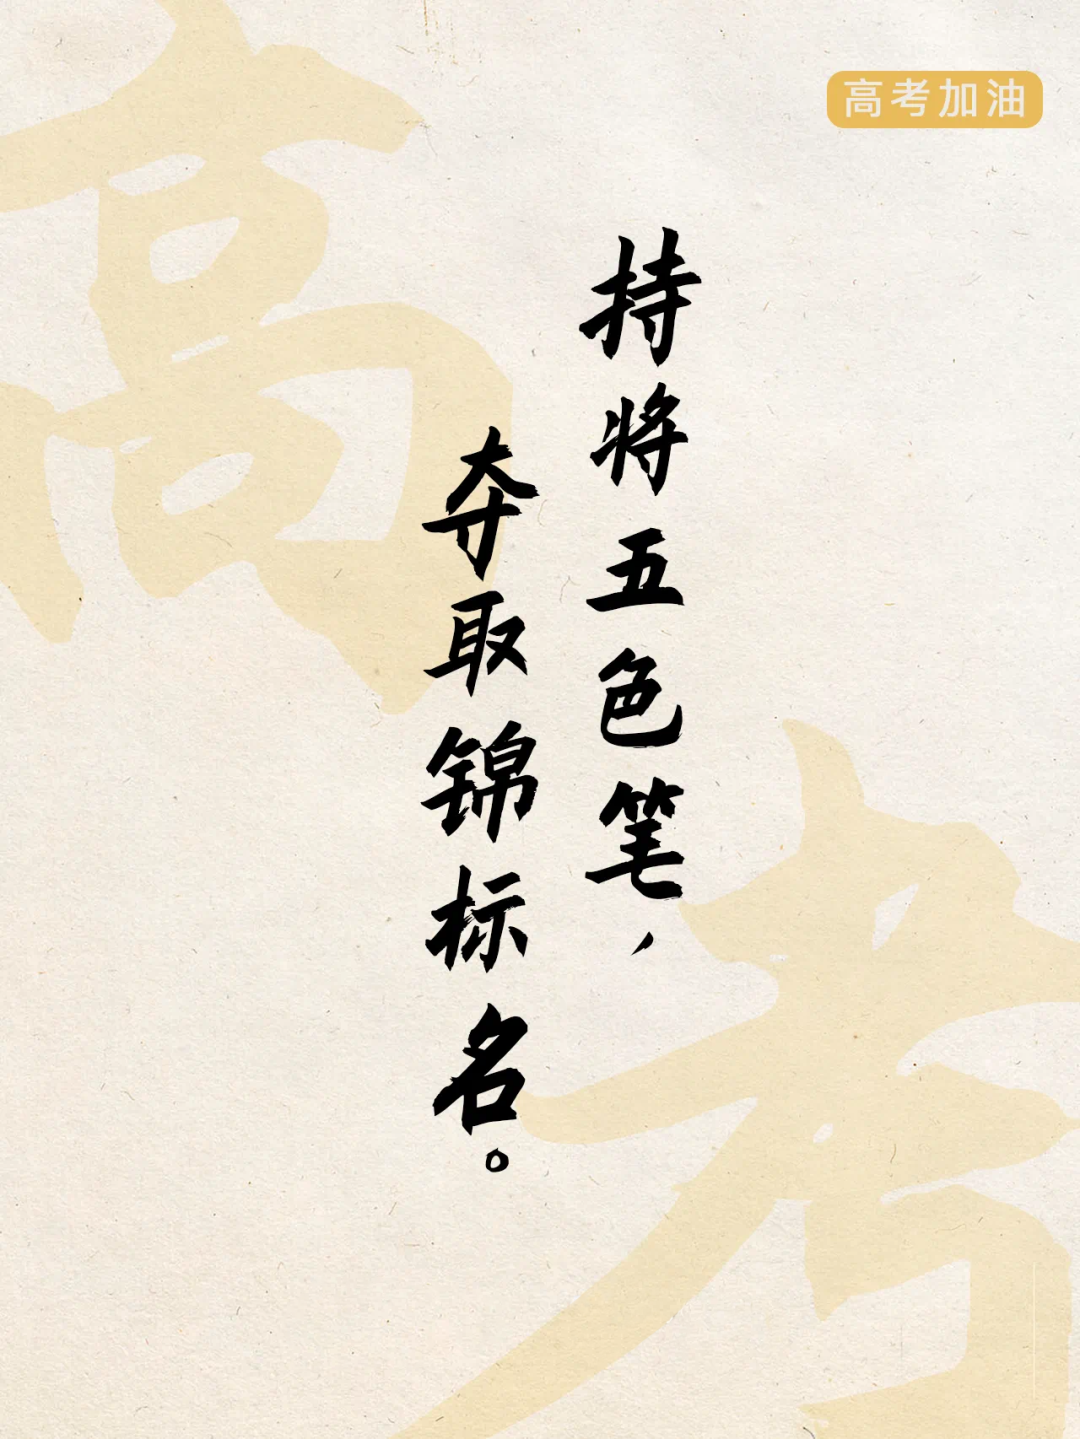 高考加油
高考
持将五色笔，
夺取锦标名。